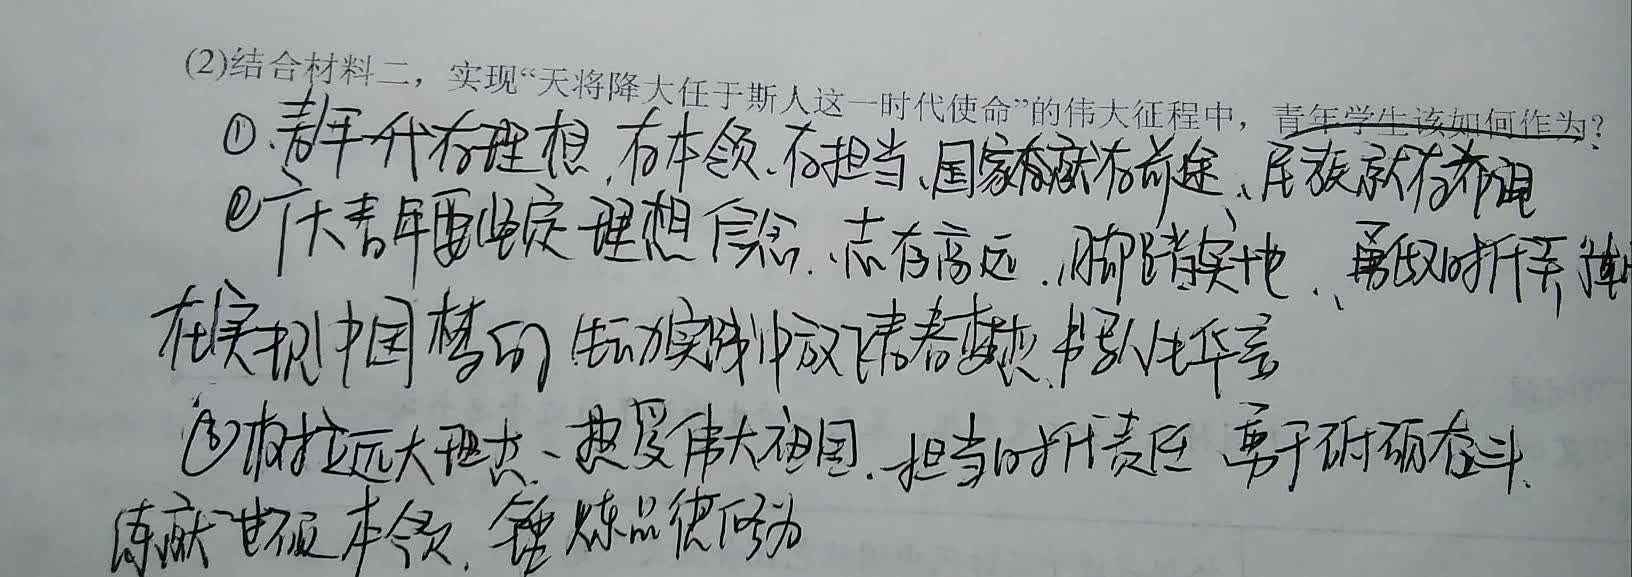 (2)结合材料二，实现“天将降大任于斯人这一时代使命”的伟大征程中，青年学生该如何作为？
①.青年一代有理想,有本领、有担当、国家就有前途、民族就有希望
②广大青年要坚定理想信念、志有高远、脚踏实地、勇做时代弄潮
在实现中国梦的生动实践中放飞青春梦想.书写人生华章
③树立远大理想、热爱伟大祖国.担当时代责任 勇于砥砺奋斗.
练就过硬本领.锤炼品德修为